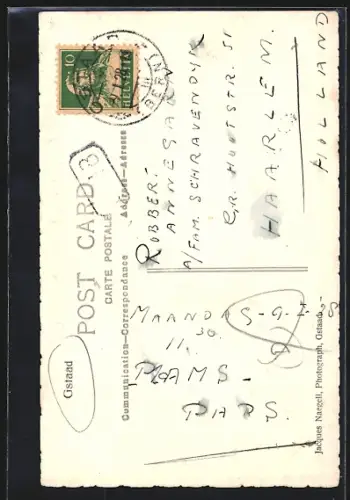 Gstaad
POST CARD
CARTE POSTALE
Communication—Correspondance
Address—Adresse
MAANDAG
11.30
MAMS
PAPS.
10
HELVETIA
GSTAAD
(BERN)
ROBBERT
A/FAM. SCHRAVENDYK
GR. HOUTSTR. 51
HAARLEM.
HOLLAND
Jacques Naegeli, Photograph, Gstaad